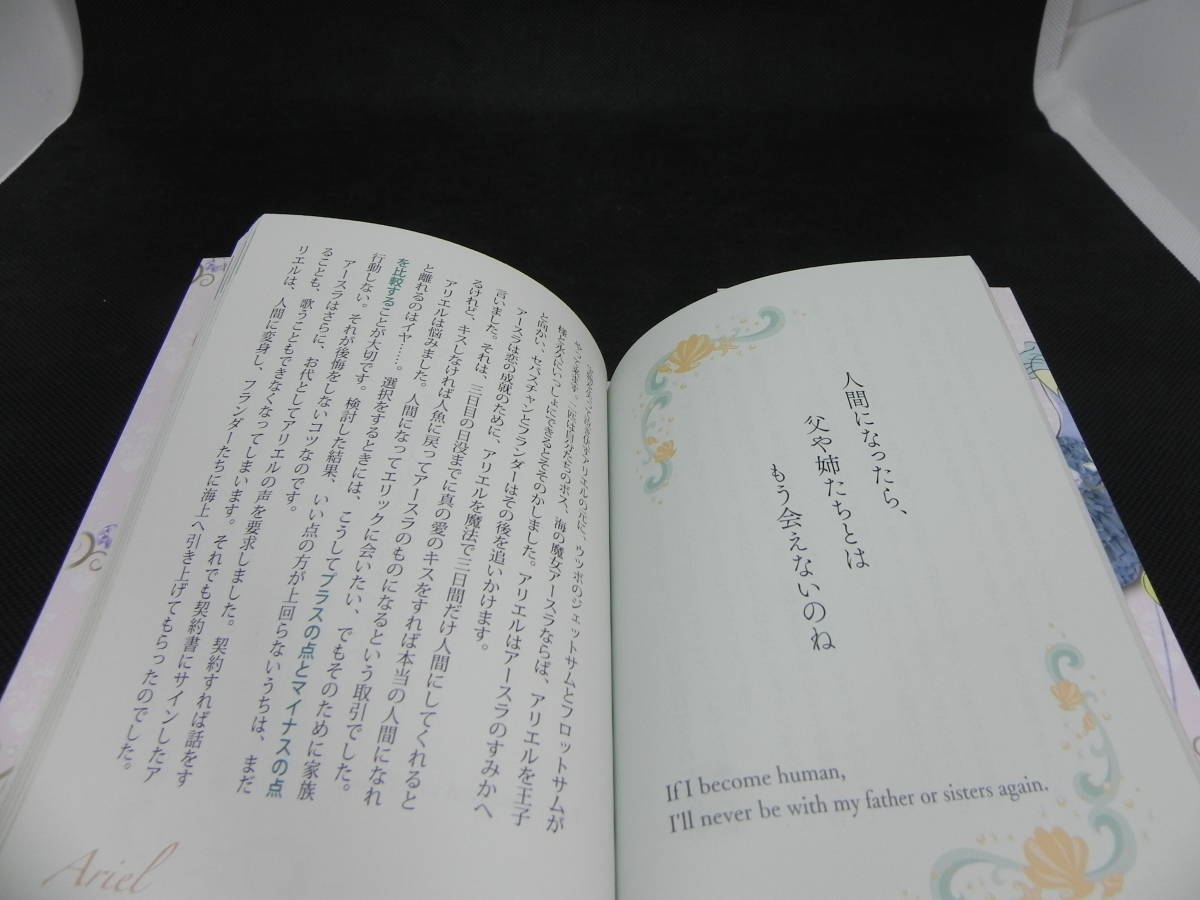 人間になったら、
父や姉たちとは
もう会えないのね
If I become human,
I'll never be with my father or sisters again.
ウツボのジェットサムとフロットサムが
やって来ます。二匹は自分たちのボス、海の魔女アースラならば、アリエルを王子
様と永久にいっしょにできるとそそのかしました。アリエルはアースラのすみかへ
と向かい、セバスチャンとフランダーはその後を追いかけます。
アースラは恋の成就のために、アリエルを魔法で三日間だけ人間にしてくれると
言いました。それは、三日目の日没までに真の愛のキスをすれば本当の人間になれ
るけれど、キスしなければ人魚に戻ってアースラのものになるという取引でした。
アリエルは悩みました。人間になってエリックに会いたい、でもそのために家族
と離れるのはイヤ……。選択をするときには、こうしてプラスの点とマイナスの点
を比較することが大切です。検討した結果、いい点の方が上回らないうちは、まだ
行動しない。それが後悔をしないコツなのです。
アースラはさらに、お代としてアリエルの声を要求しました。契約すれば話をす
ることも、歌うこともできなくなってしまいます。それでも契約書にサインしたア
リエルは、人間に変身し、フランダーたちに海上へ引き上げてもらったのでした。
Ariel